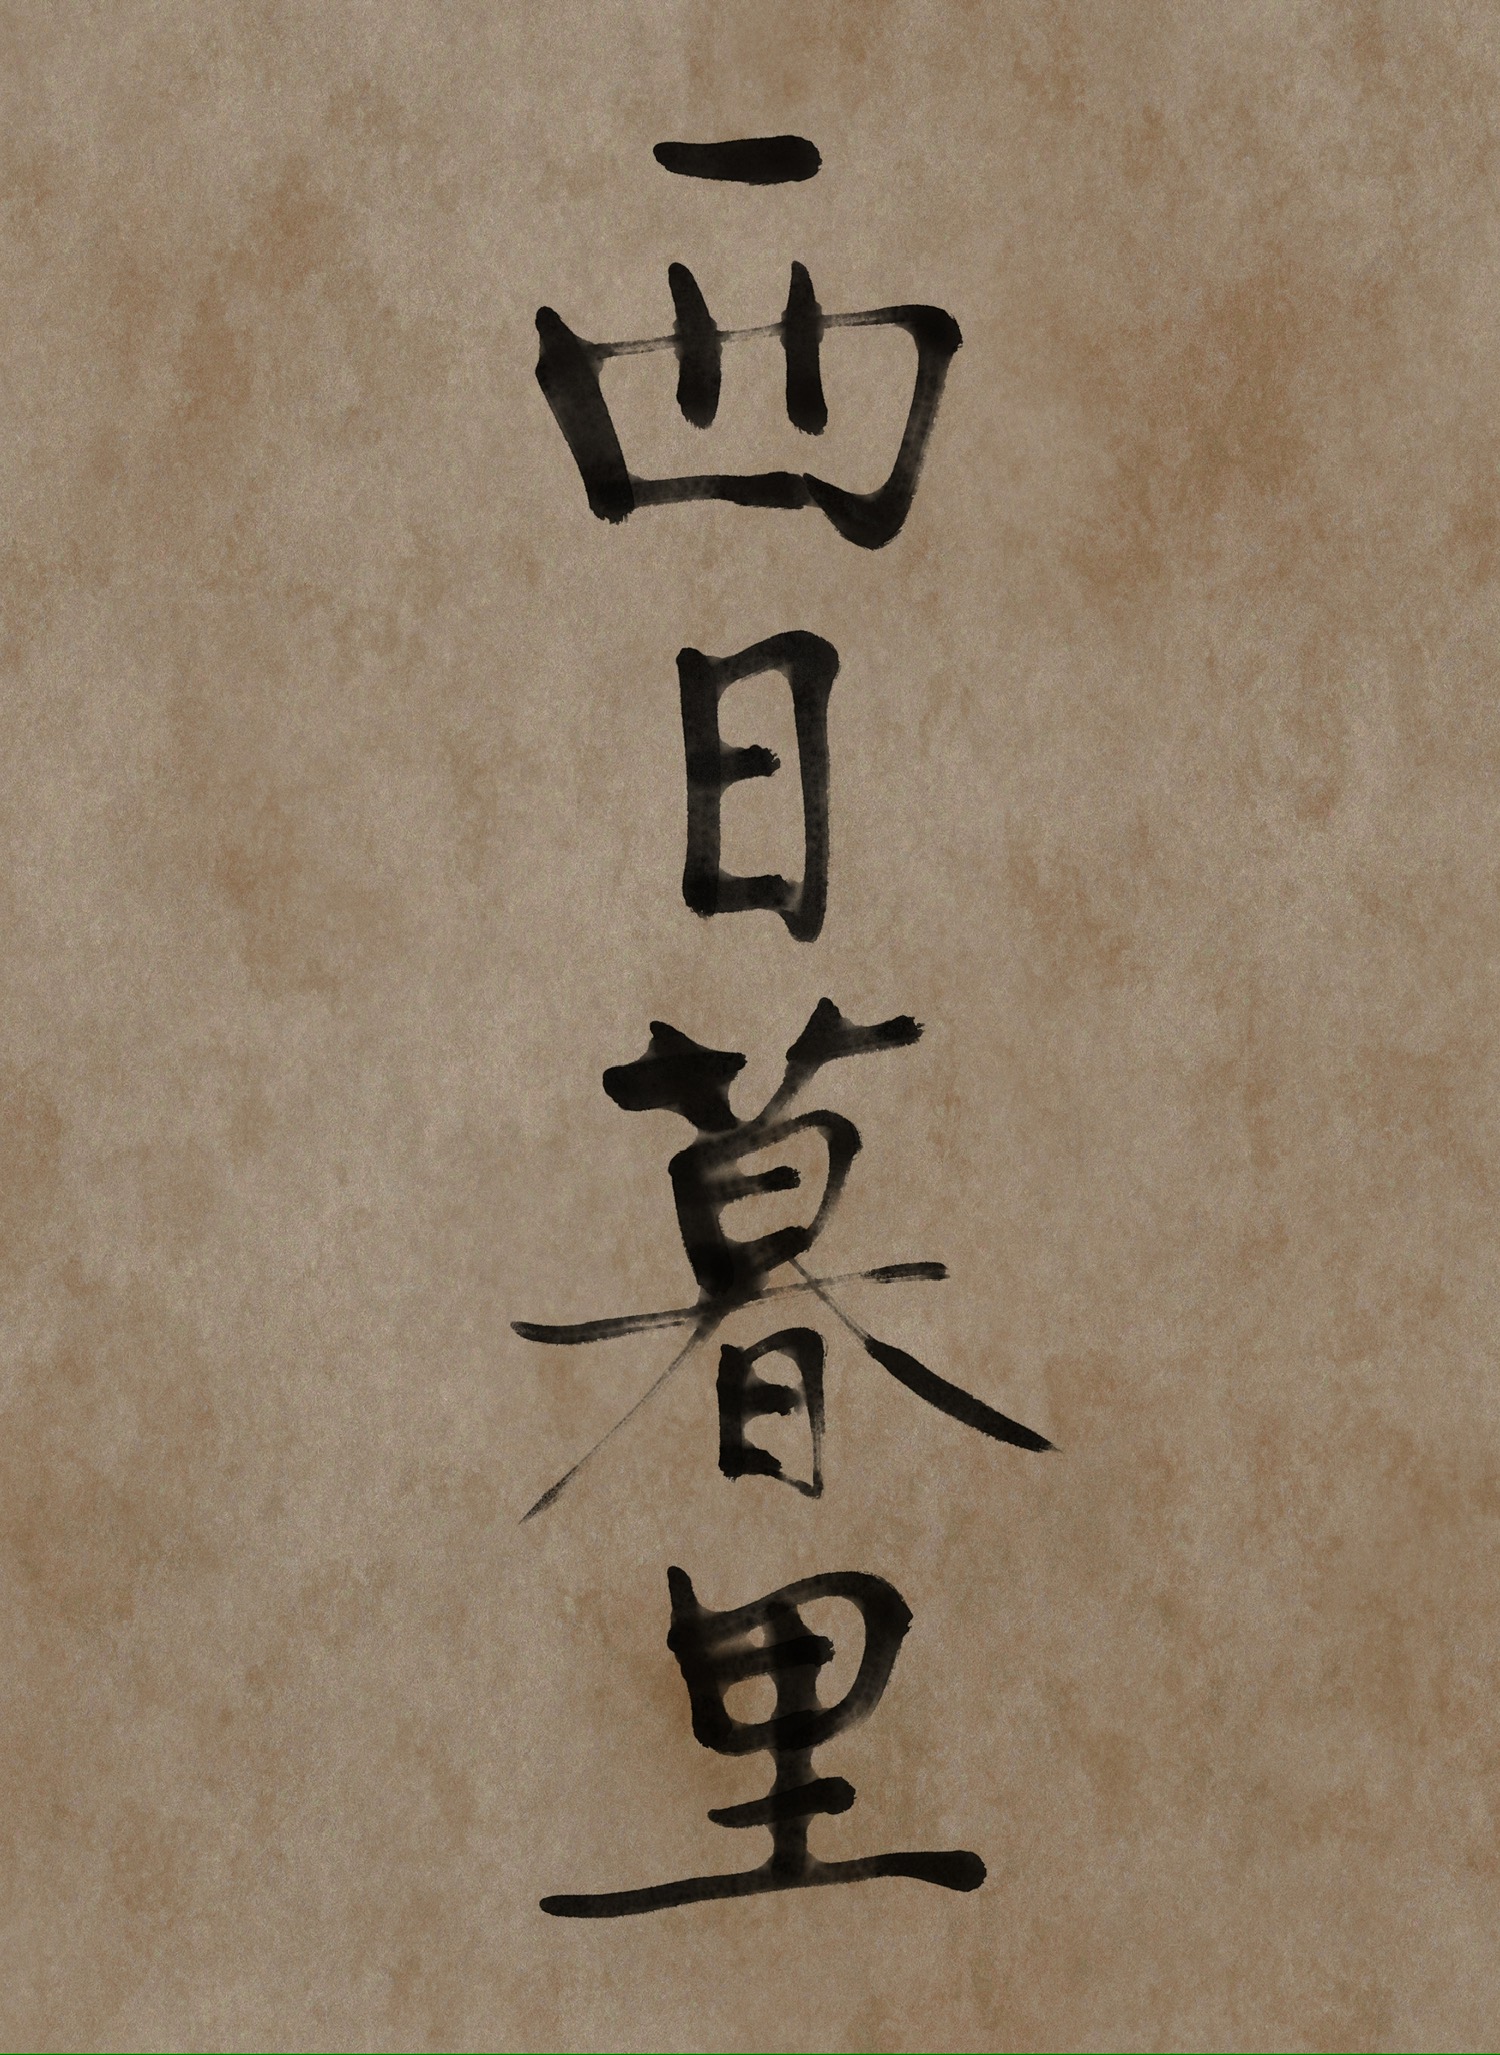 西日暮里